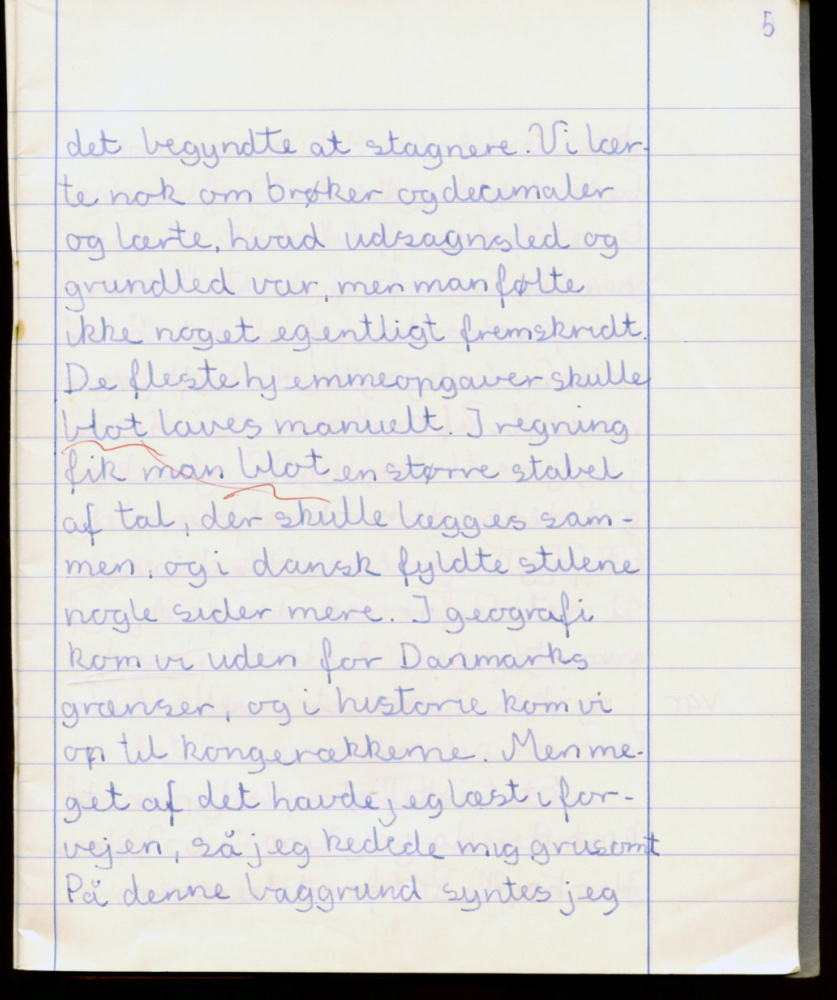 5
det begyndte at stagnere. Vi lær-
te nok om brøker og decimaler
og lærte, hvad udsagnsled og
grundled var, men man følte
ikke noget egentligt fremskridt.
De fleste hjemmeopgaver skulle
blot laves manuelt. I regning
fik man blot en større stabel
af tal, der skulle lægges sam-
men, og i dansk fyldte stilene
nogle sider mere. I geografi
kom vi uden for Danmarks
grænser, og i historie kom vi
op til kongerækkerne. Men me-
get af det havde jeg læst i for-
vejen, så jeg kedede mig grusomt
På denne baggrund syntes jeg